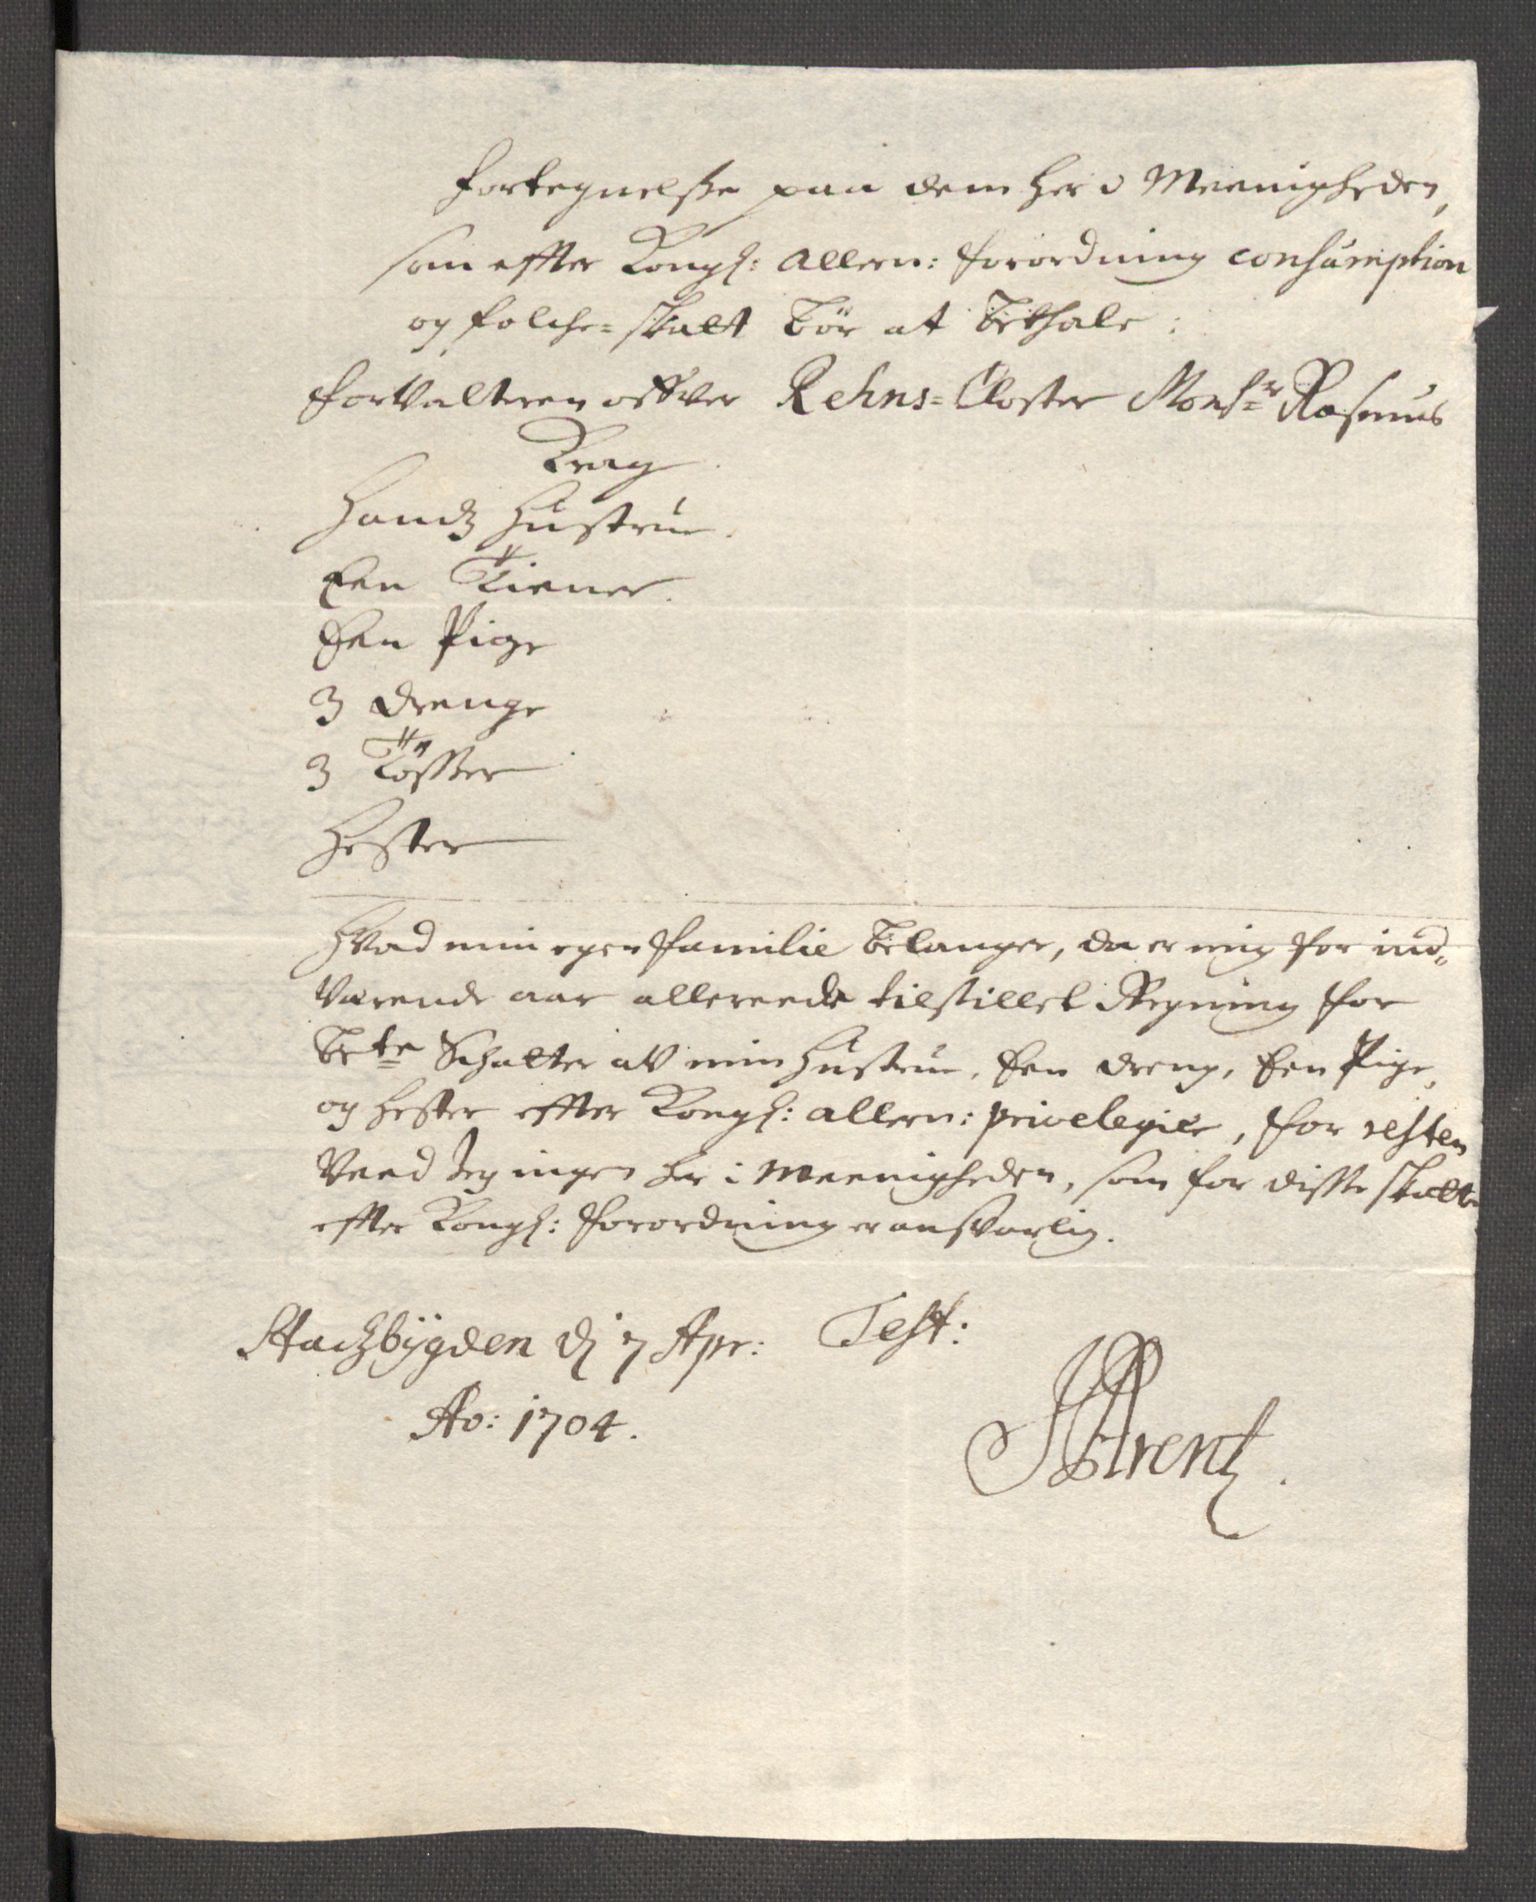 Fortegnelsse paa dem her i Meenigheden,
som effter Kongl: allern: forordning consumption
og folche-skatt bör at bethale:
Forvalteren offver Rehns-Closter Monsr Rasmus
Krag
Handz Hustrue.
Een Tiener.
Een Pige
3 drenge
3 Tösser
Hester
Hvad min egen familie belanger, da er mig for ind-
værende aar allereede tilstillet Regning for
bete Schatter av min Hustrue, Een dreng, Een Pige,
og hester effter Kongl: allern: privelegier, for resten
veed Jeg ingen her i Meenigheden, som for disse skatter
effter Kongl: forordning er ansvarlig.
Stadzbÿgden dj 7 Apr: Test:
Ao: 1704.
Arentz.